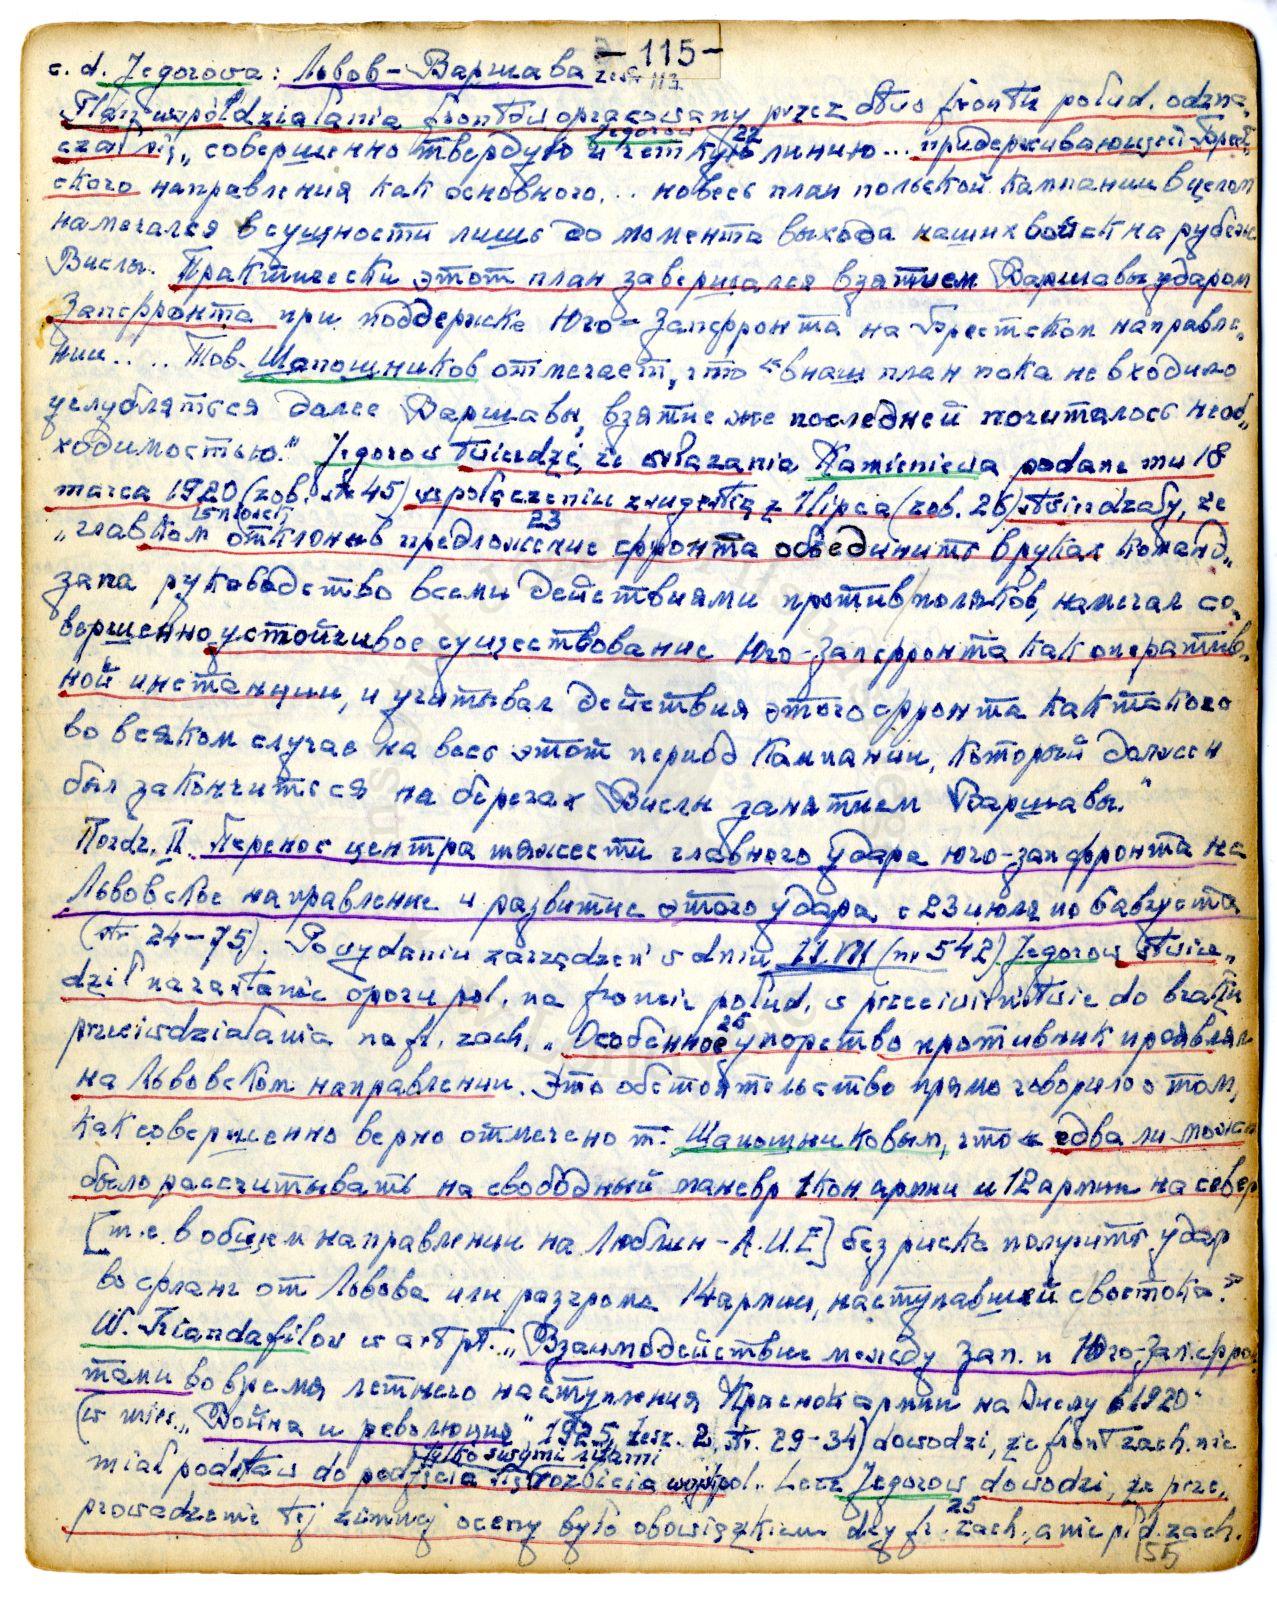 - 115 -
c. d. Jegorowa: Львов - Варшава zesz. 113.
Plan współdziałania frontów opracowany przez dtwo frontu połud. odzna„
czał się „совершенно твердую и четкую линию... придерживающейся Брест„
Jegorow 22
ского направления как основного... но весь план польской кампании в целом
намечался в сущности лишь до момента выхода наших войск на рубеж
Вислы. Практически этот план завершался взятием Варшавы ударом
Запфронта при поддержке Юго-Запфронта на Брестском направле„
нии.... Тов. Шапошников отмечает, что "в наш план пока не входило
углубляться далее Варшавы, взятие же последней почиталось необ„
ходимостью." Jegorow twierdzi, że wskazania Kamieniewa podane mu 18
marca 1920 (zob. str 45) w połączeniu z sugestią z 1 lipca (zob. 26) stwierdzały, że
„главком отклонив предложение фронта объединить в руках команд„
23
запа руководство всеми действиями против поляков, намечал со„
вершенно устойчивое существование Юго-Запфронта как оператив„
ной инстанции, и учитывал действия этого фронта как такого
во всяком случае на весь этот период кампании, который должен
был закончиться на берегах Вислы занятием Варшавы."
Rozdz. II. Перенос центра тяжести главного удара юго-запфронта на
Львовское направление и развитие этого удара с 23 июля по 6 августа
(str. 24-75). Po wydaniu zarządzeń w dniu 11.VII (nr 542) Jegorow stwier„
dził narastanie oporu pol. na froncie połud. w przeciwieństwie do braku
przeciwdziałania na fr. zach. „Особенное упорство противник проявлял
26
на Львовском направлении. Это обстоятельство прямо говорило о том,
как совершенно верно отмечено т. Шапошниковым, что « едва ли можно
было рассчитывать на свободный маневр 1 кон армии и 12 армии на север
[т.е. в общем направлении на Люблин - А.И.Е] без риска получить удар
во фланг от Львова или разгрома 14 армии, наступавшей с востока."
W. Triandafiłow w art pt. „Взаимодействие между Зап. и Юго-Зап. фрон
тами во время летнего наступления Красной армии на Вислу в 1920"
(w mies. „Война и революция", 1925, zesz. 2, str. 29-34) dowodzi, że front zach. nie
miał podstaw do podjęcia się rozbicia wojsk pol. Lecz Jegorow dowodzi, że prze„
tylko swymi siłami
prowadzenie tej zimnej oceny było obowiązkiem d-cy fr. zach., a nie płd. zach.
25
155